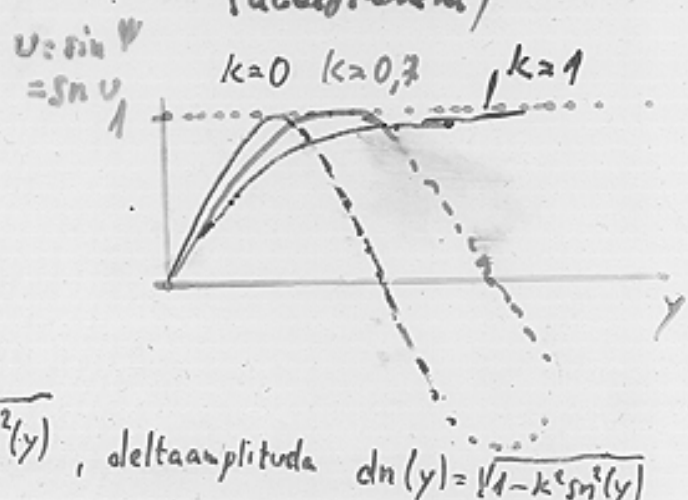 υ = sin ψ
= sn υ
k=0 k=0,7 k=1
1
y
²(y), deltaamplituda dn(y) = √1-k²sn²(y)